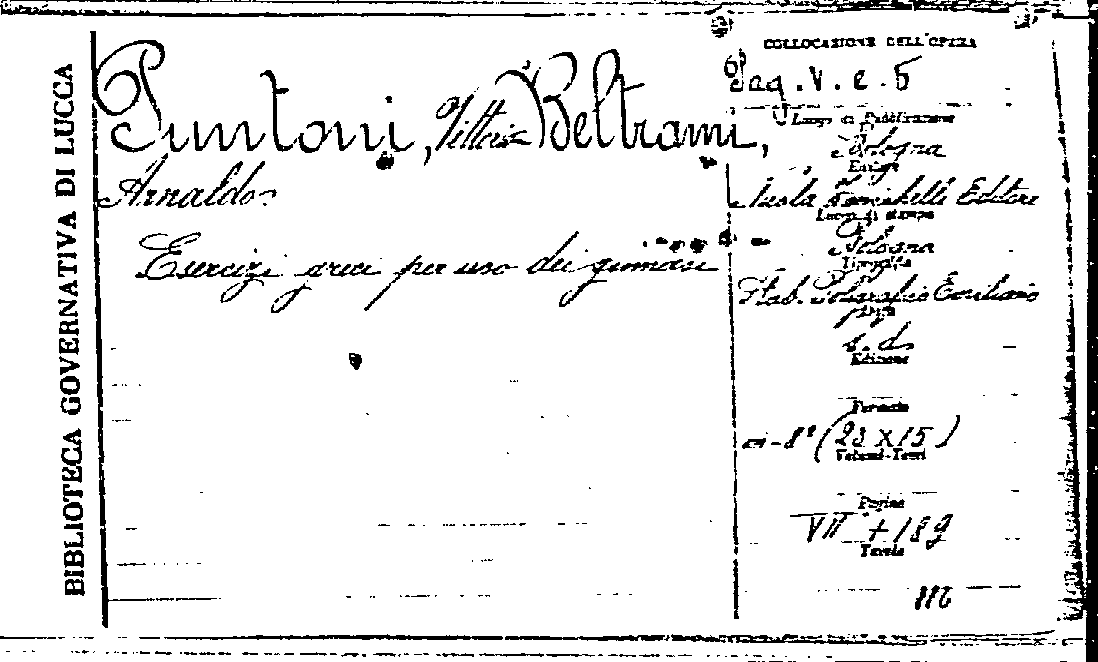 BIBLIOTECA GOVERNATIVA DI LUCCA
Puntoni, Vittorio Beltrami,
Arnaldo
Esercizi greci per uso dei ginnasi
COLLOCAZIONE DELL'OPERA
Pag. V. e. 5
Luogo di Pubblicazione
Bologna
Editore
Nicola Zanichelli Editore
Luogo di stampa
Bologna
Tipografia
Stab. Poligrafico Emiliano
Data
s. d.
Edizione
Formato
in-8° (23 x 15)
Volumi-Tomi
Pagine
VII + 189
Tavole